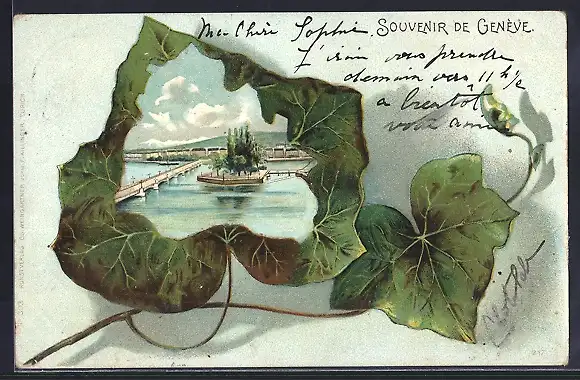 Ma Chère Sophie.
SOUVENIR DE GENÈVE.
J'irai vous prendre
demain vers 11 h ½
a bientôt
votre amie